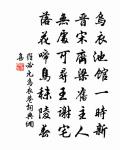 烏衣池館一時新
晉宋齊梁舊主人
無處可尋王謝宅
落花啼鳥秣陵春
羅必元烏衣巷詞典網
集